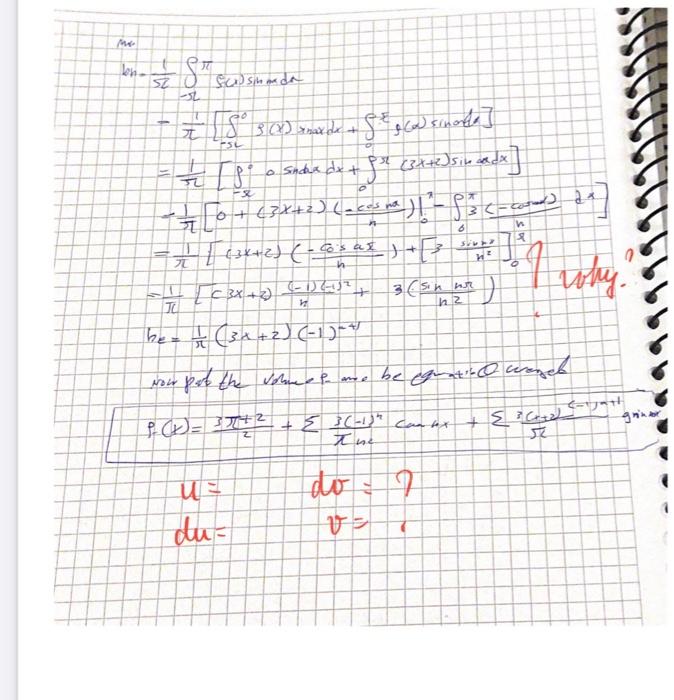 bn = 1/π ∫_{-π}^{π} f(x) sin nx dx
= 1/π [∫_{-π}^{0} f(x) sin nx dx + ∫_{0}^{π} f(x) sin nx dx]
= 1/π [∫_{-π}^{0} 0 sin nx dx + ∫_{0}^{π} (3x+2) sin nx dx]
= 1/π [0 + (3x+2) (-cos nx / n) |_{0}^{π} - ∫_{0}^{π} 3 (-cos nx) / n dx]
= 1/π [(3x+2) (-cos nπ / n) + [3 sin nx / n²]_{0}^{π} ? why?
= 1/π [(3x+2) (-1)(-1)^n / n + 3 (sin nπ / n²)
= 1/π (3x+2) (-1)^{n+1}
Now put the value of be equation ① we get
f(x) = 3π+2 / 2 + Σ 3(-1)^n / π n² cos nx + Σ (-1)^{n+1} sin nx
u = dv = ?
du = v = ?